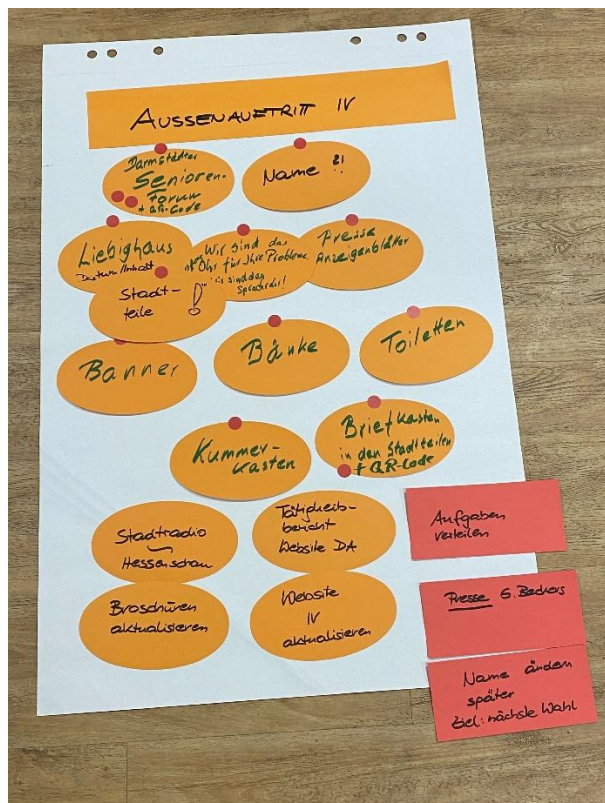 AUSSENAUFTRITT IV
Darmstädter
Senioren-
Forum
+ QR-Code
Name ?!
Liebighaus
Wir sind das
Ohr für Ihre Probleme
Presse
Anzeigenblätter
Stadt-
teile
Banner
Bänke
Toiletten
Kummer-
kasten
Briefkasten
in den Stadtteilen
+ QR-Code
Stadtradio
Hessenschau
Tätigkeits-
bericht
Website DA
Broschüren
aktualisieren
Website
IV
aktualisieren
Aufgaben
verteilen
Presse G. Beckers
Name ändern
später
Ziel: nächste Wahl